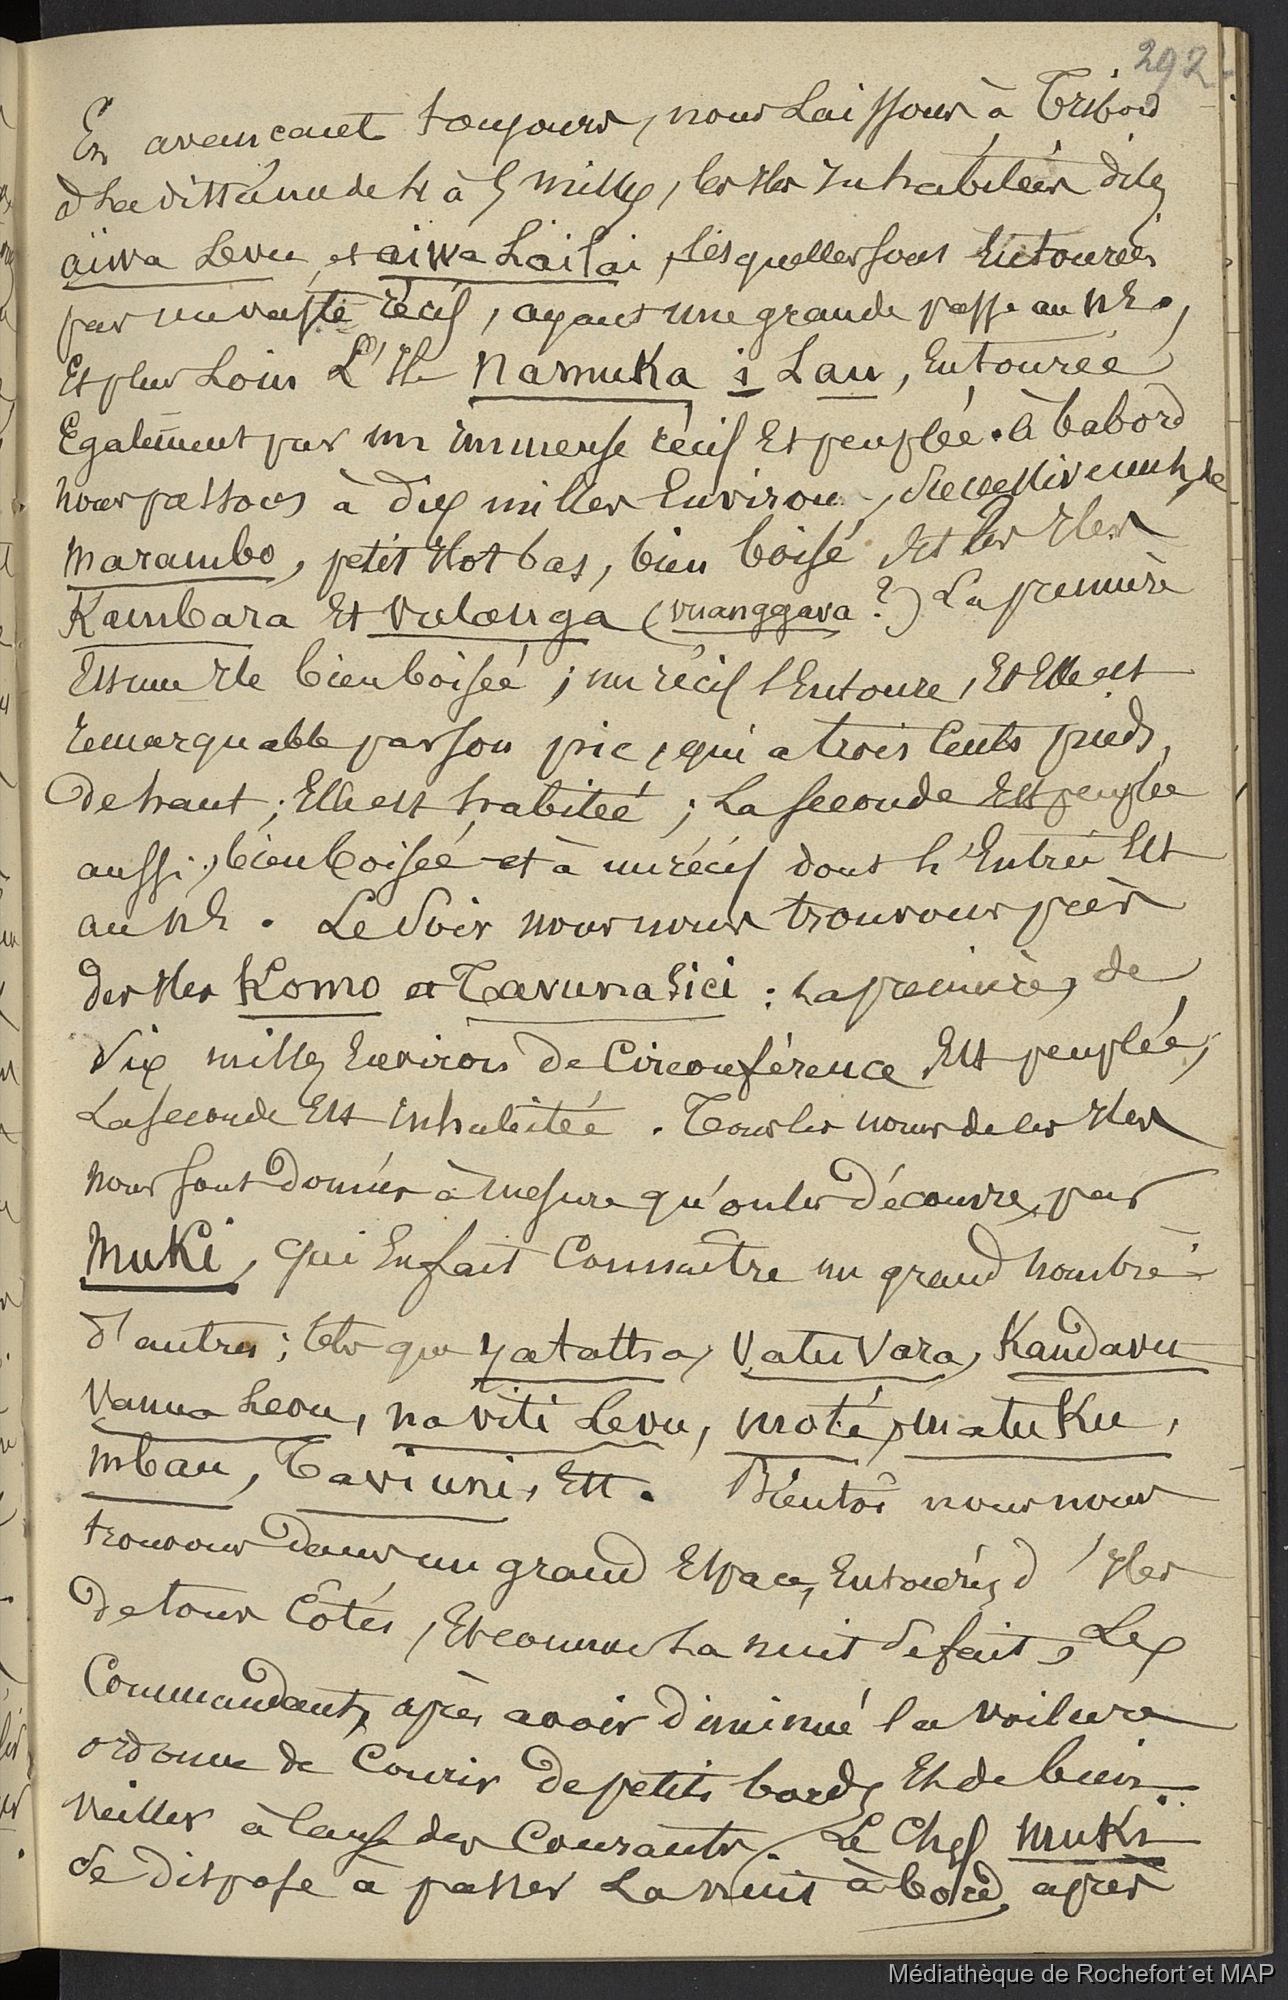 292
En avancant toujours, nous laissons à Tribord
à la distance de 4 à 5 milles, les Iles Inhabitées dites
aïwa Levu, et aiwa Laïlai, lesquelles sont Entourées
par un vaste récif, ayant une grande passe au NE.,
Et plus Loin L'Ile Namuka i Lau, Entourée
Egalement par un immense récif Et peuplée. à babord
nous passons à dix milles Environ, successivement, de
Marambo, petit Ilot bas, bien boisé, Et les Iles
Kambara Et Vulanga (vuanggava ?) La première
Est une Ile bien boisée ; un récif l'Entoure, Et Elle est
remarquable par son pic, qui a trois Cents pieds
de haut ; Elle est habitée ; La seconde Est peuplée
aussi, bien boisée et à un récif dont l'Entrée Est
au NE. Le Soir nous nous trouvons près
des Iles Komo et Tavunasici : La première, de
Six milles Environ de Circonférence Est peuplée,
La seconde Est inhabitée. Tous les noms de ces Iles
nous sont donnés à mesure qu'on les découvre, par
Muki, qui En fait Connaître un grand nombre
d'autres ; tels que Yatatha, Vatu Vara, Kandavu
Vanua Levu, na viti Levu, moté, matuku,
mbau, Taviuni, Ett. Bientôt nous nous
trouvons dans un grand Espace, Entourés d'Iles
de tous Côtés, Et comme La nuit se fait, Le
Commandant, après avoir diminué la voilure
ordonne de Courir de petits bords Et de bien
veiller à cause des Courants. Le Chef Muki
se dispose à passer La nuit à bord, après
Médiathèque de Rochefort et MAP